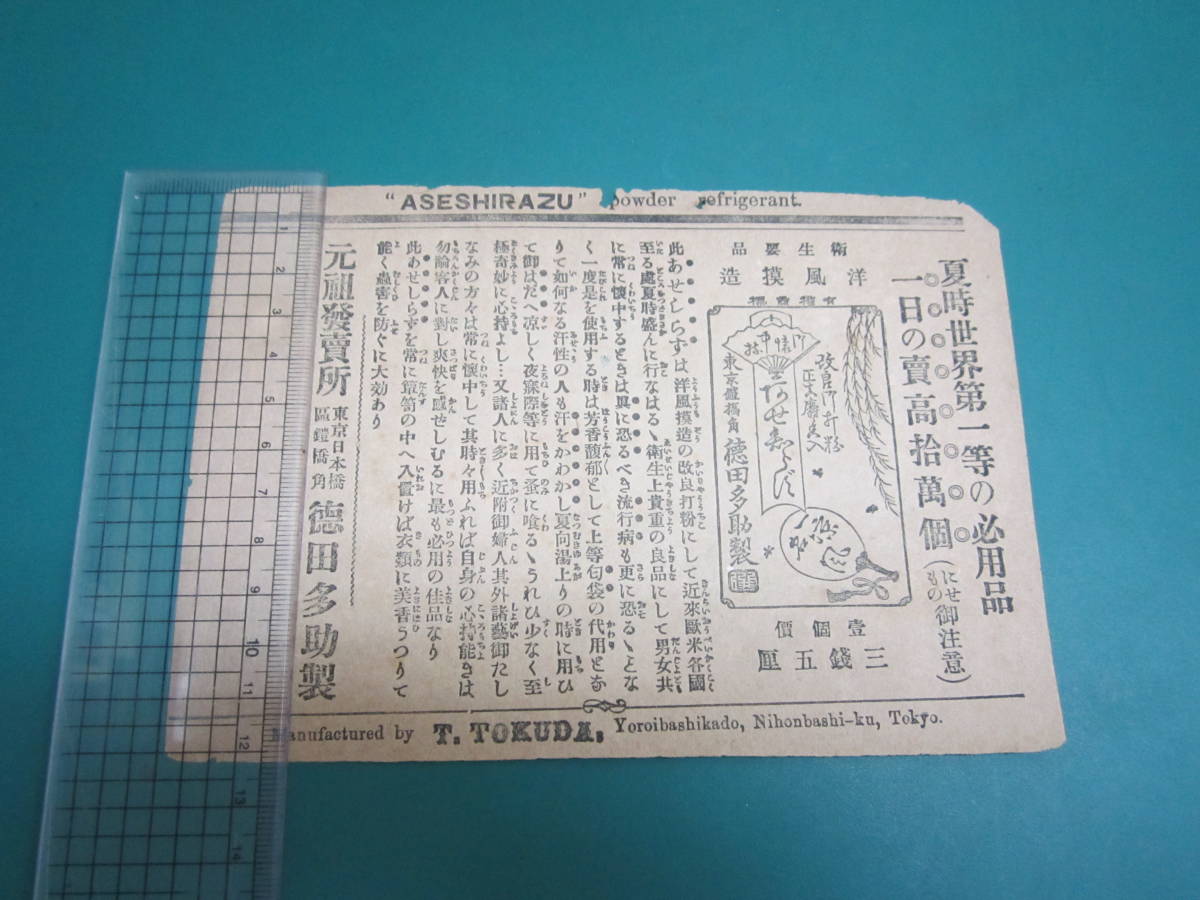 "ASESHIRAZU" powder refrigerant.
夏時世界第一等の必用品
一日の賣高拾萬個(にせもの御注意)
衛生要品
洋風摸造
東京鎧橋角 德田多助製
壹個價
三錢五厘
此あせしらずは洋風摸造の改良打粉にして近來歐米各國
至る處夏時盛んに行なはるゝ衛生上貴重の良品にして男女共
に常に懷中するときは異に恐るべき流行病も更に恐るゝとな
く一度是を使用する時は芳香馥郁として上等匂袋の代用とな
りて如何なる汗性の人も汗をかわかし夏向湯上りの時に用ひ
て御はだ凉しく夜寐際等に用て蚤に喰るゝうれひ少なく至
極奇妙に心持よし…又諸人に多く近附御婦人其外諸藝御たし
なみの方々は常に懷中して其時々用ふれば自身の心持能きは
勿論客人に對し爽快を感せしむるに最も必用の佳品なり
此あせしらずを常に簞笥の中へ入置けば衣類に美香うつりて
能く蟲害を防ぐに大効あり
元祖發賣所 東京日本橋區鎧橋角 德田多助製
Manufactured by T. TOKUDA, Yoroibashikado, Nihonbashi-ku, Tokyo.
1
2
3
4
5
6
7
8
9
10
11
12
13
14